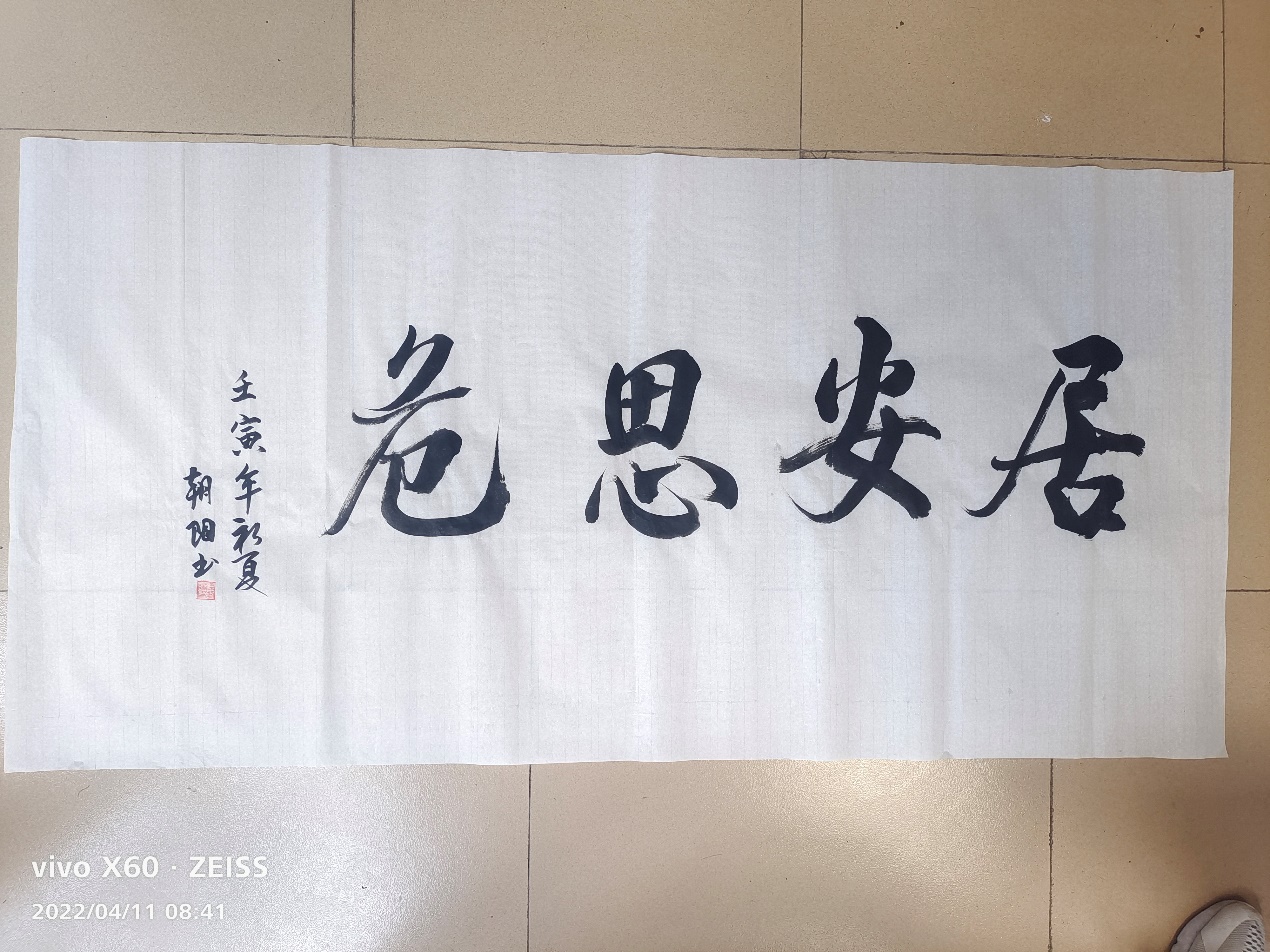 居安思危
壬寅年初夏
朝阳书
vivo X60 · ZEISS
2022/04/11 08:41